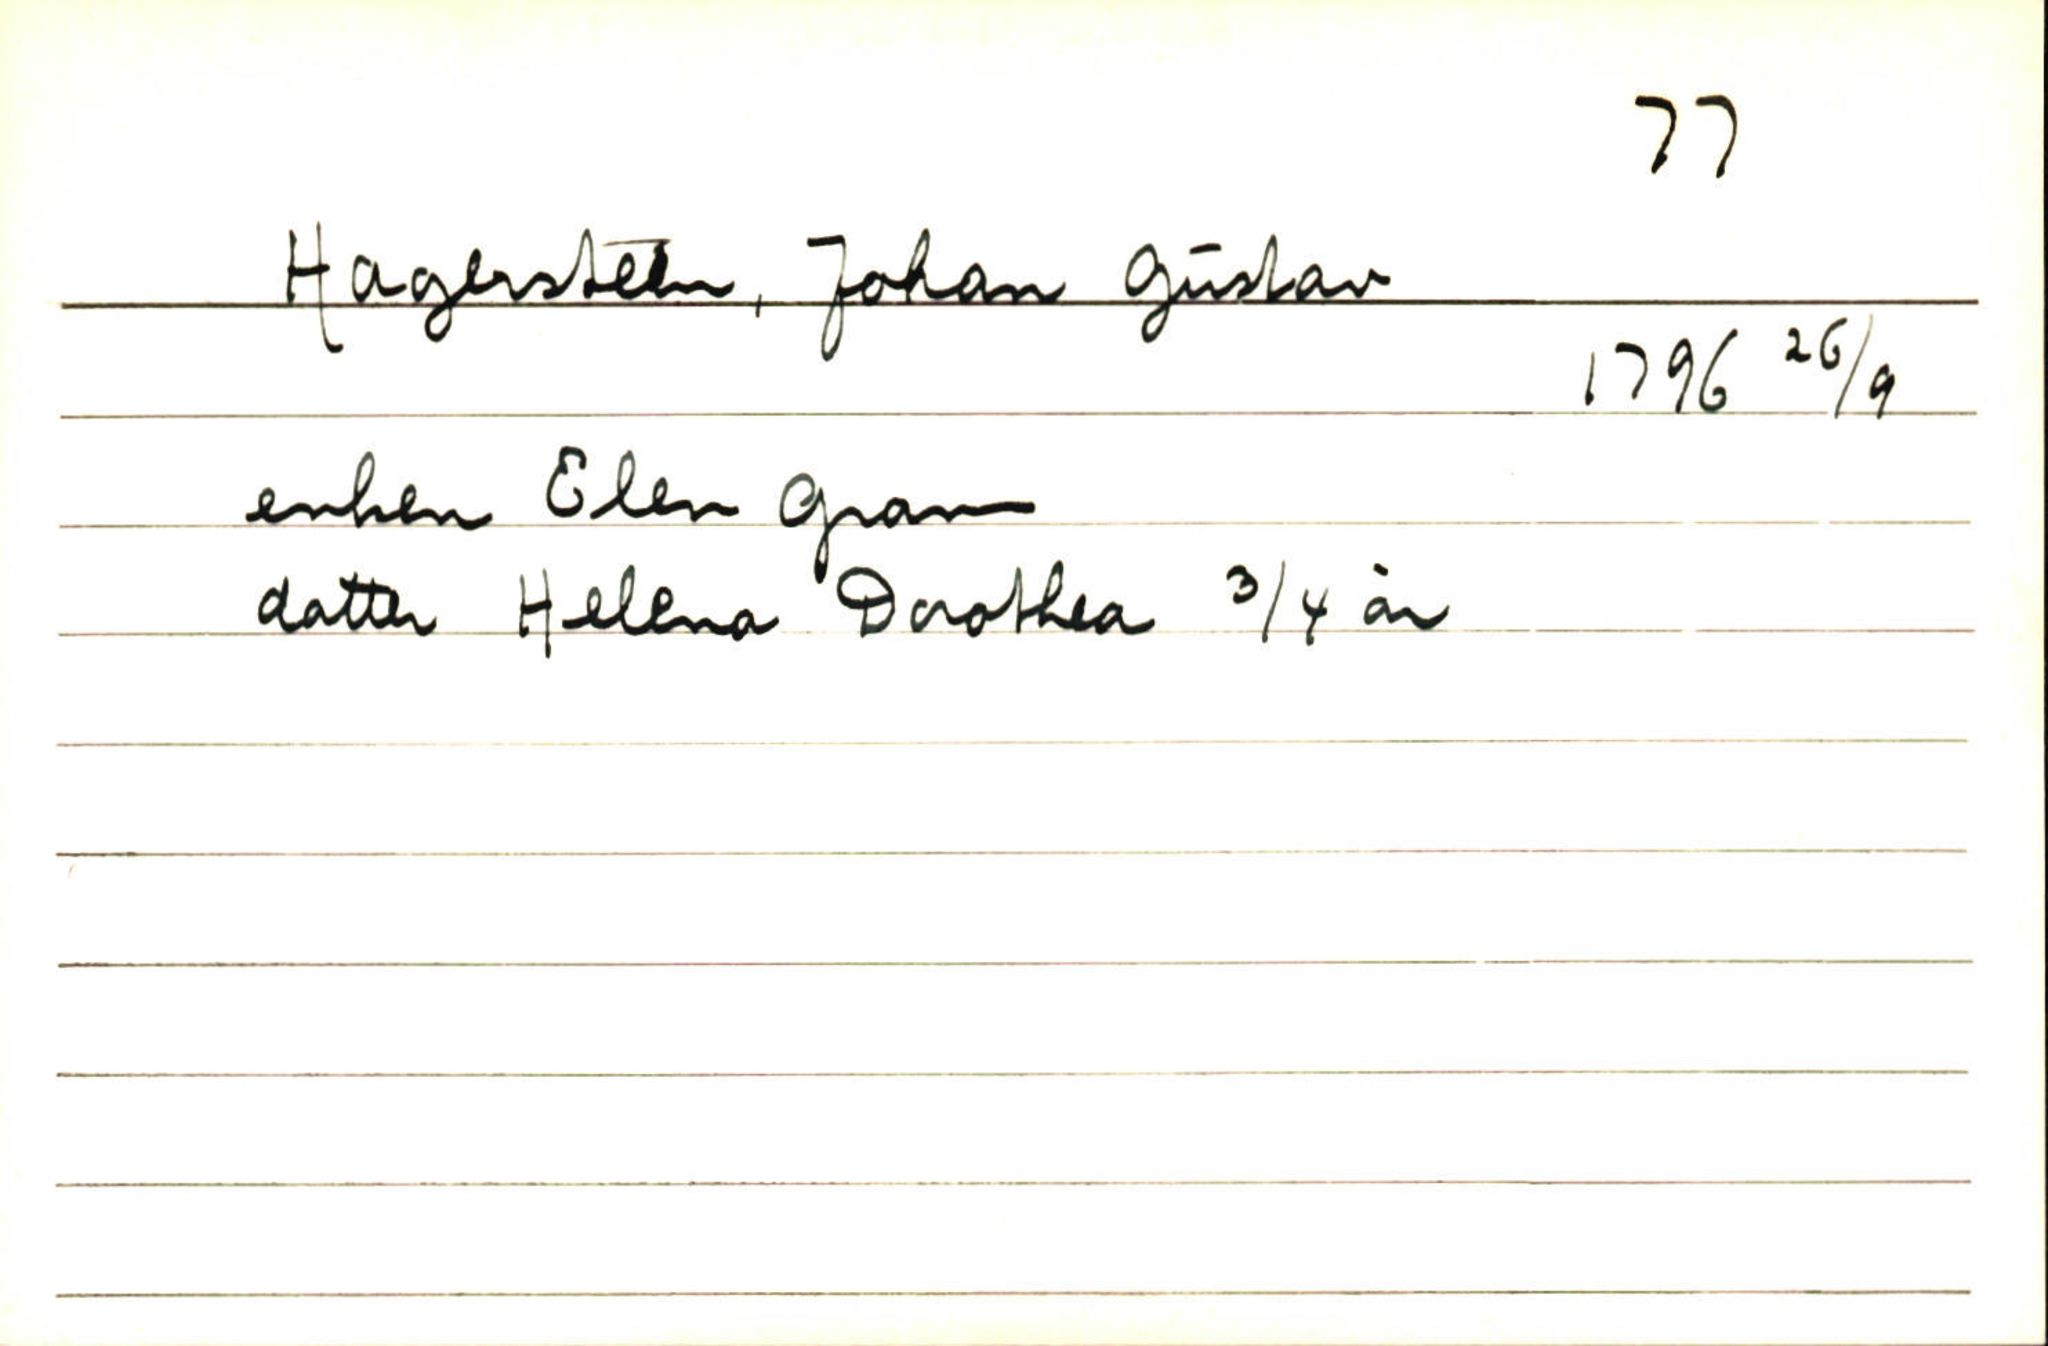 77
Hagersteen, Johan Gustav
1796 26/9
enken Elen Gram
datter Helena Dorothea 3/4 år